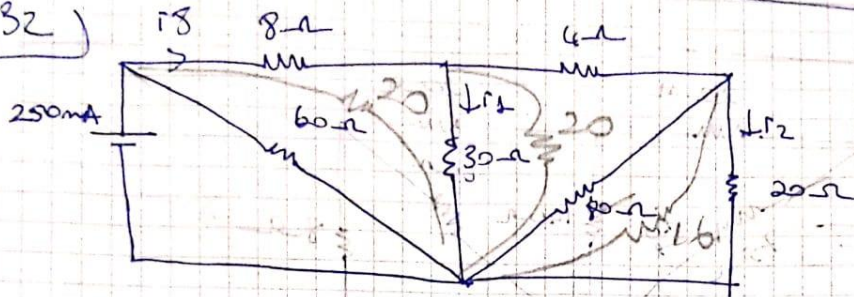 32)
i8
8Ω
4Ω
250mA
60Ω
20
↓i1
30Ω
20
80Ω
16
↓i2
20Ω